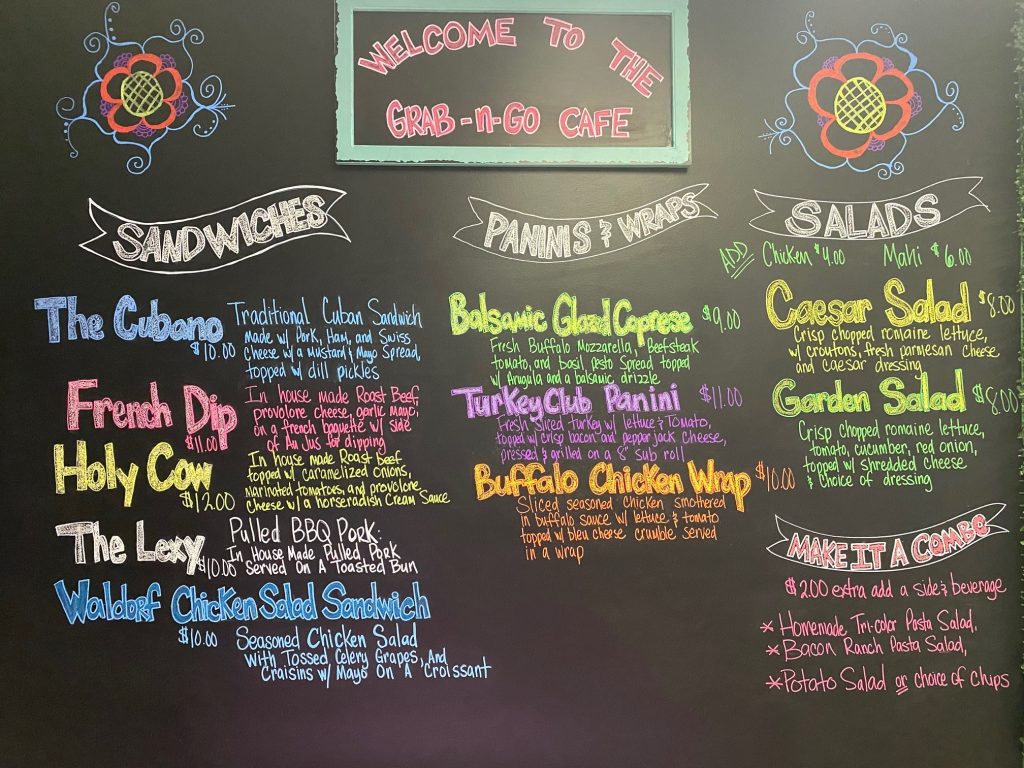 WELCOME TO THE
GRAB-N-GO CAFE
SANDWICHES
The Cubano
$10.00
Traditional Cuban Sandwich
made w/ Pork, Ham, and Swiss
cheese w/ a Mustard & Mayo Spread,
topped w/ dill pickles
French Dip
$11.00
In house made Roast Beef,
provolone cheese, garlic mayo,
on a french baguette w/ side
of Au Jus for dipping
Holy Cow
$12.00
In house made Roast Beef
topped w/ caramelized onions,
marinated tomatoes, and provolone
cheese w/ a horseradish Cream Sauce
The Lexy
$10.00
Pulled BBQ Pork:
In House Made Pulled Pork
Served On A Toasted Bun
Waldorf Chicken Salad Sandwich
$10.00
Seasoned Chicken Salad
With Tossed Celery Grapes, And
Craisins w/ Mayo On A Croissant
PANINIS & WRAPS
Balsamic Glazd Caprese $9.00
Fresh Buffalo Mozzarella, Beefsteak
tomato, and basil pesto Spread topped
w/ Arugula and a balsamic drizzle
Turkey Club Panini $11.00
Fresh Sliced turkey w/ lettuce & tomato,
topped w/ crisp bacon and pepper jack cheese,
pressed & grilled on a 8" sub roll
Buffalo Chicken Wrap $10.00
Sliced seasoned chicken smothered
in buffalo sauce w/ lettuce & tomato
topped w/ bleu cheese crumble served
in a wrap
SALADS
ADD Chicken $4.00 Mahi $6.00
Caesar Salad $8.00
Crisp chopped romaine lettuce,
w/ croutons, fresh parmesan cheese
and caesar dressing
Garden Salad $8.00
Crisp chopped romaine lettuce,
tomato, cucumber, red onion,
topped w/ shredded cheese
& choice of dressing
MAKE IT A COMBO
$2.00 extra add a side & beverage
* Homemade Tri-color Pasta Salad,
* Bacon Ranch Pasta Salad,
* Potato Salad or choice of Chips